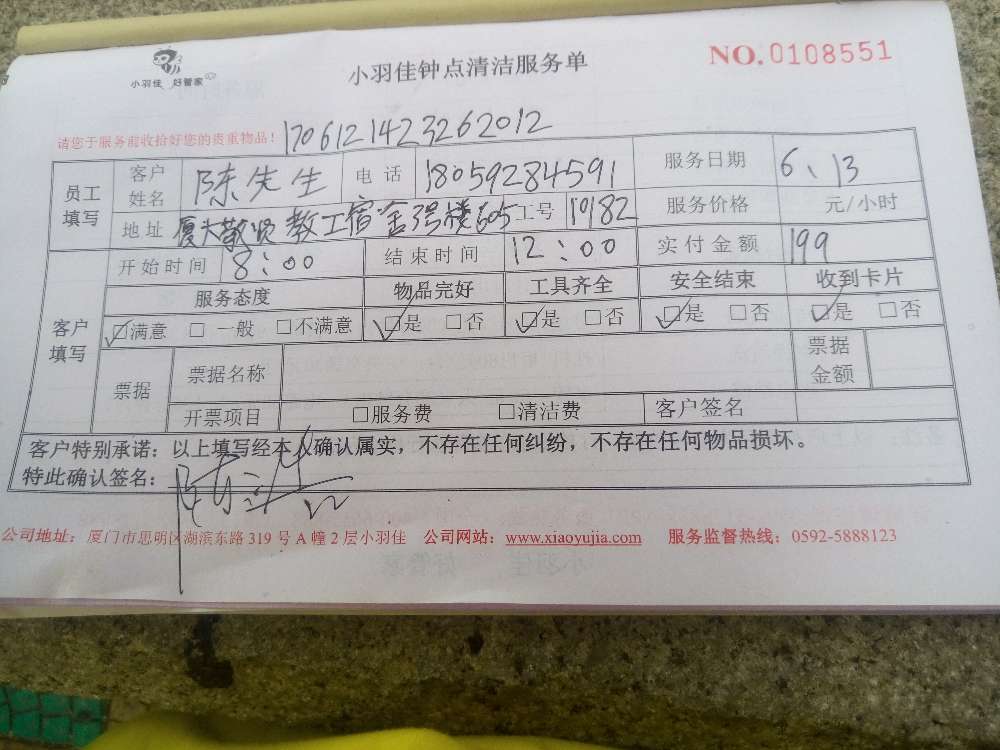 小羽佳 好管家
小羽佳钟点清洁服务单
NO.0108551
请您于服务前收拾好您的贵重物品！170612142326 2012
员工填写 客户姓名 陈先生 电话 18059284591 服务日期 6、13
地址 厦大敬贤教工宿舍3号楼605 工号 10182 服务价格 元/小时
客户填写 开始时间 8：00 结束时间 12：00 实付金额 199
服务态度 物品完好 工具齐全 安全结束 收到卡片
☑满意 □一般 □不满意 ☑是 □否 ☑是 □否 ☑是 □否 ☑是 □否
票据 票据名称 票据金额
开票项目 □服务费 □清洁费 客户签名
客户特别承诺：以上填写经本人确认属实，不存在任何纠纷，不存在任何物品损坏。
特此确认签名：
公司地址：厦门市思明区湖滨东路 319 号 A 幢 2 层小羽佳 公司网站：www.xiaoyujia.com 服务监督热线：0592-5888123